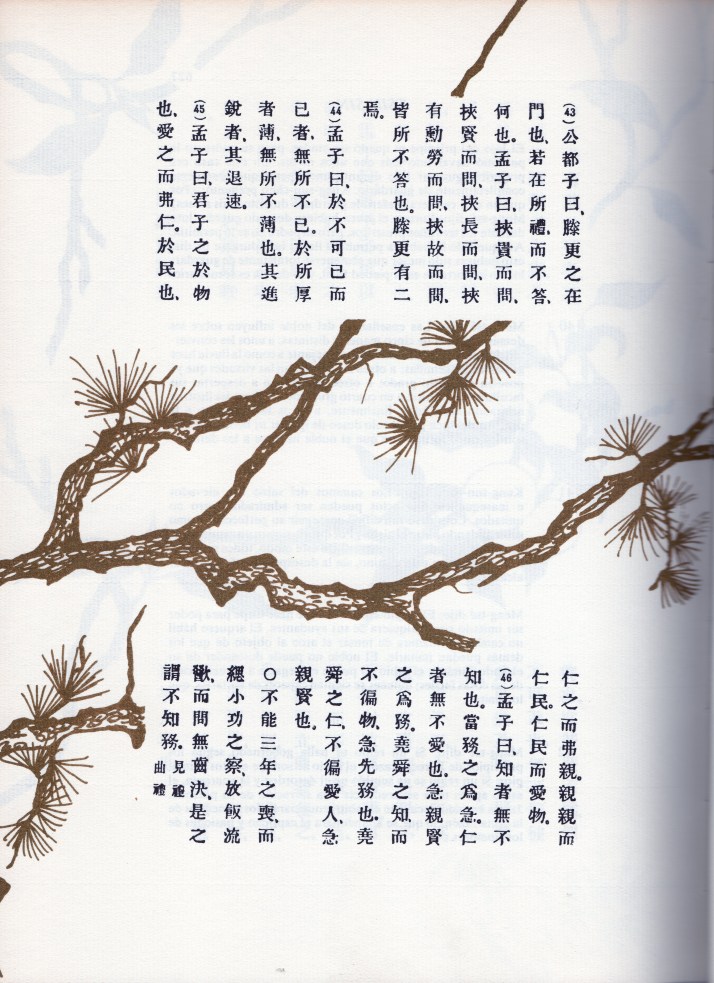 (43)公都子曰、滕更之在
門也、若在所禮、而不答、
何也。孟子曰、挾貴而問、
挾賢而問、挾長而問、挾
有勳勞而問、挾故而問、
皆所不答也。滕更有二
焉。
(44)孟子曰、於不可已而
已者、無所不已、於所厚
者薄、無所不薄也。其進
銳者、其退速。
(45)孟子曰、君子之於物
也、愛之而弗仁。於民也、
仁之而弗親。親親而
仁民。仁民而愛物。
(46)孟子曰、知者無不
知也。當務之爲急。仁
者無不愛也。急親賢
之爲務。堯舜之知而
不徧物、急先務也。堯
舜之仁、不徧愛人、急
親賢也。
○不能三年之喪、而
緦小功之察、放飯流
歠、而問無齒決、是之
謂不知務。見禮
曲禮